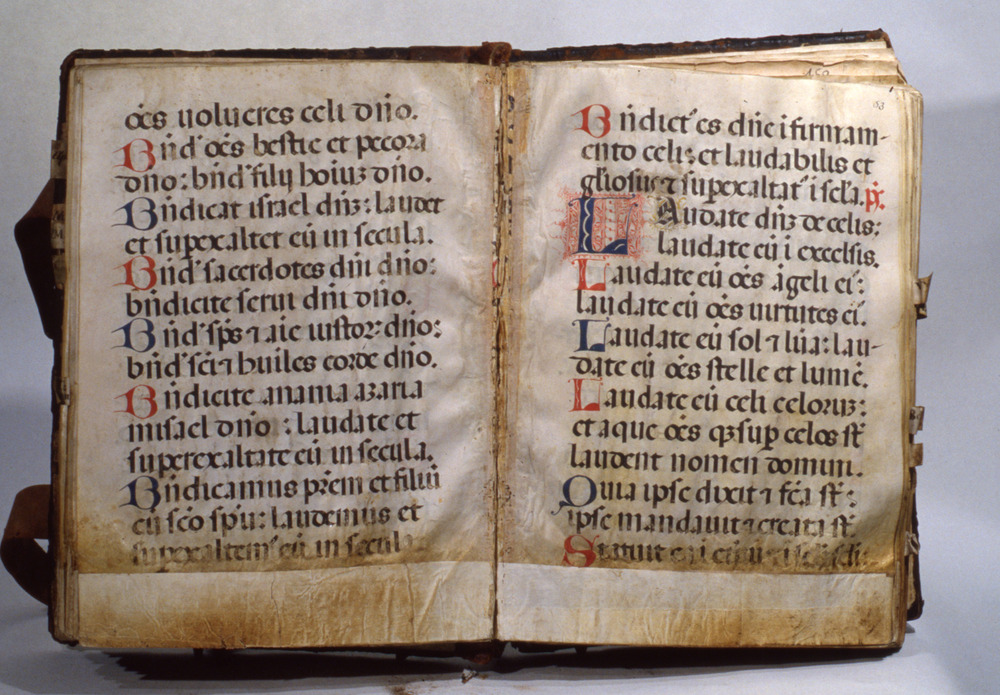 oēs uolucres celi dño.
Bñd' oēs bestie et pecora
dño: bñd' filij hoiuʒ dño.
Bñdicat israel dñʒ: laudet
et supexaltet eū in secula.
Bñd' sacerdotes dñi dño:
bñdicite serui dñi dño.
Bñd' sp̄s ⁊ aīe iustoꝝ dño:
bñd' sc̄i ⁊ huiles corde dño.
Bñdicite anania azaria
misael dño : laudate et
superexaltate eū in secula.
Bñdicamus prēm et filiū
cū sc̄o sp̄u: laudemus et
supexaltem' eū in secula
150
63
Bñdict' es dñe i firmam-
ento celi: et laudabilis et
gl̄iosus ⁊ supexaltat' i sc̄la. p̄s.
LAudate dñʒ de celis:
laudate eū i excelsis.
Laudate eū oēs āgeli ei:
laudate eū oēs uirtutes ei.
Laudate eū sol ⁊ lūa: lau-
date eū oēs stelle et lumē.
Laudate eū celi celoruʒ:
et aque oēs q̄ sup celos st̄
laudent nomen domini.
Quia ipse dixit ⁊ fc̄a st̄:
ipse mandauit ⁊ creata st̄.
Statuit